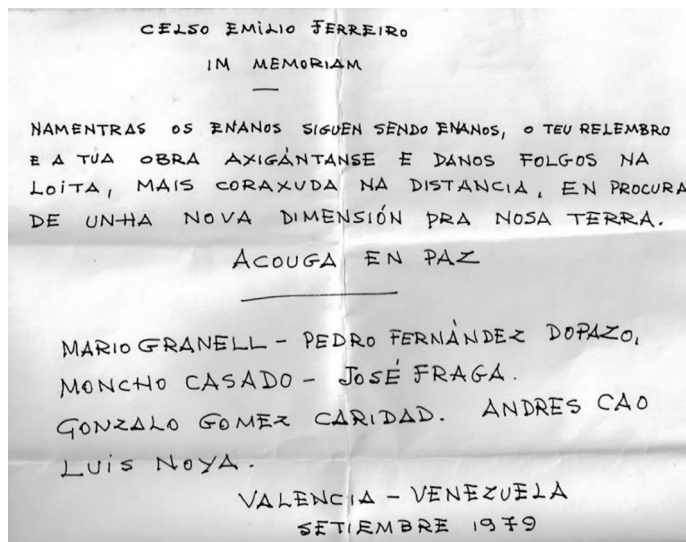 CELSO EMILIO FERREIRO
IM MEMORIAM
NAMENTRAS OS ENANOS SIGUEN SENDO ENANOS, O TEU RELEMBRO
E A TUA OBRA AXIGÁNTANSE E DANOS FOLGOS NA
LOITA, MAIS CORAXUDA NA DISTANCIA, EN PROCURA
DE UN-HA NOVA DIMENSIÓN PRA NOSA TERRA.
ACOUGA EN PAZ
MARIO GRANELL - PEDRO FERNÁNDEZ DOPAZO,
MONCHO CASADO - JOSÉ FRAGA.
GONZALO GOMEZ CARIDAD. ANDRES CAO
LUIS NOYA.
VALENCIA - VENEZUELA
SETIEMBRE 1979